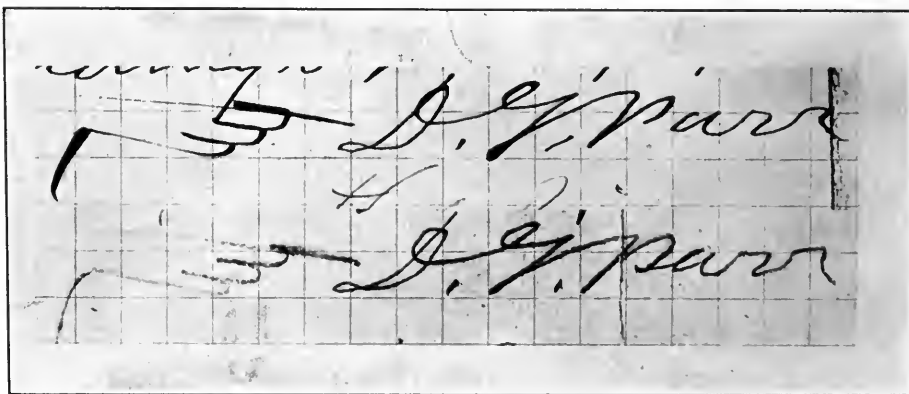 D. G. Parr
D. G. Parr